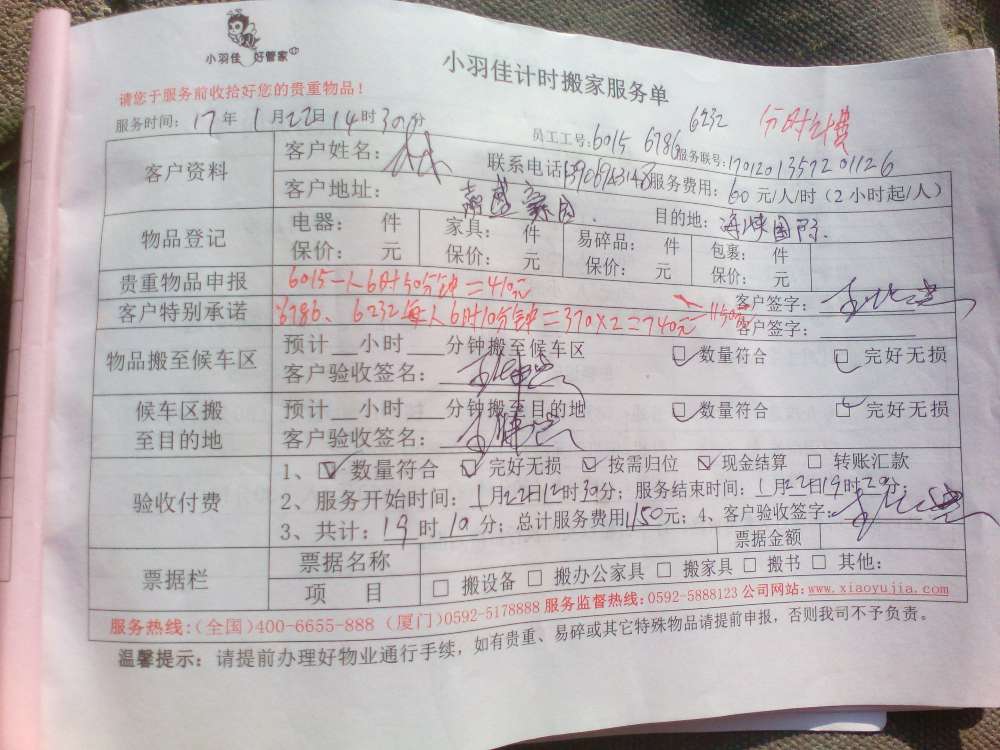 小羽佳 好管家
小羽佳计时搬家服务单
请您于服务前收拾好您的贵重物品！
服务时间：17年1月22日14时30分
员工工号：6015 6786 6232 分时计费
服务联号：1701201357201126
客户资料 客户姓名： 联系电话 服务费用：60元/人/时（2小时起/人）
客户地址： 目的地：海峡国际
物品登记 电器： 件 家具： 件 易碎品： 件 包裹： 件
保价： 元 保价： 元 保价： 元 保价： 元
贵重物品申报 6015一人6时50分钟=410元 客户签字：
客户特别承诺 6786、6232每人6时10分钟=370×2=740元 1150元 客户签字：
物品搬至候车区 预计 小时 分钟搬至候车区 数量符合 完好无损
客户验收签名：
候车区搬至目的地 预计 小时 分钟搬至目的地 数量符合 完好无损
客户验收签名：
验收付费 1、☑数量符合 ☑完好无损 ☑按需归位 ☑现金结算 □转账汇款
2、服务开始时间：1月22日12时30分；服务结束时间：1月22日19时20分；
3、共计：19时10分；总计服务费用1150元；4、客户验收签字：
票据栏 票据名称 票据金额
项 目 □搬设备 □搬办公家具 □搬家具 □搬书 □其他：
服务热线：（全国）400-6655-888（厦门）0592-5178888 服务监督热线：0592-5888123 公司网站：www.xiaoyujia.com
温馨提示：请提前办理好物业通行手续，如有贵重、易碎或其它特殊物品请提前申报，否则我司不予负责。